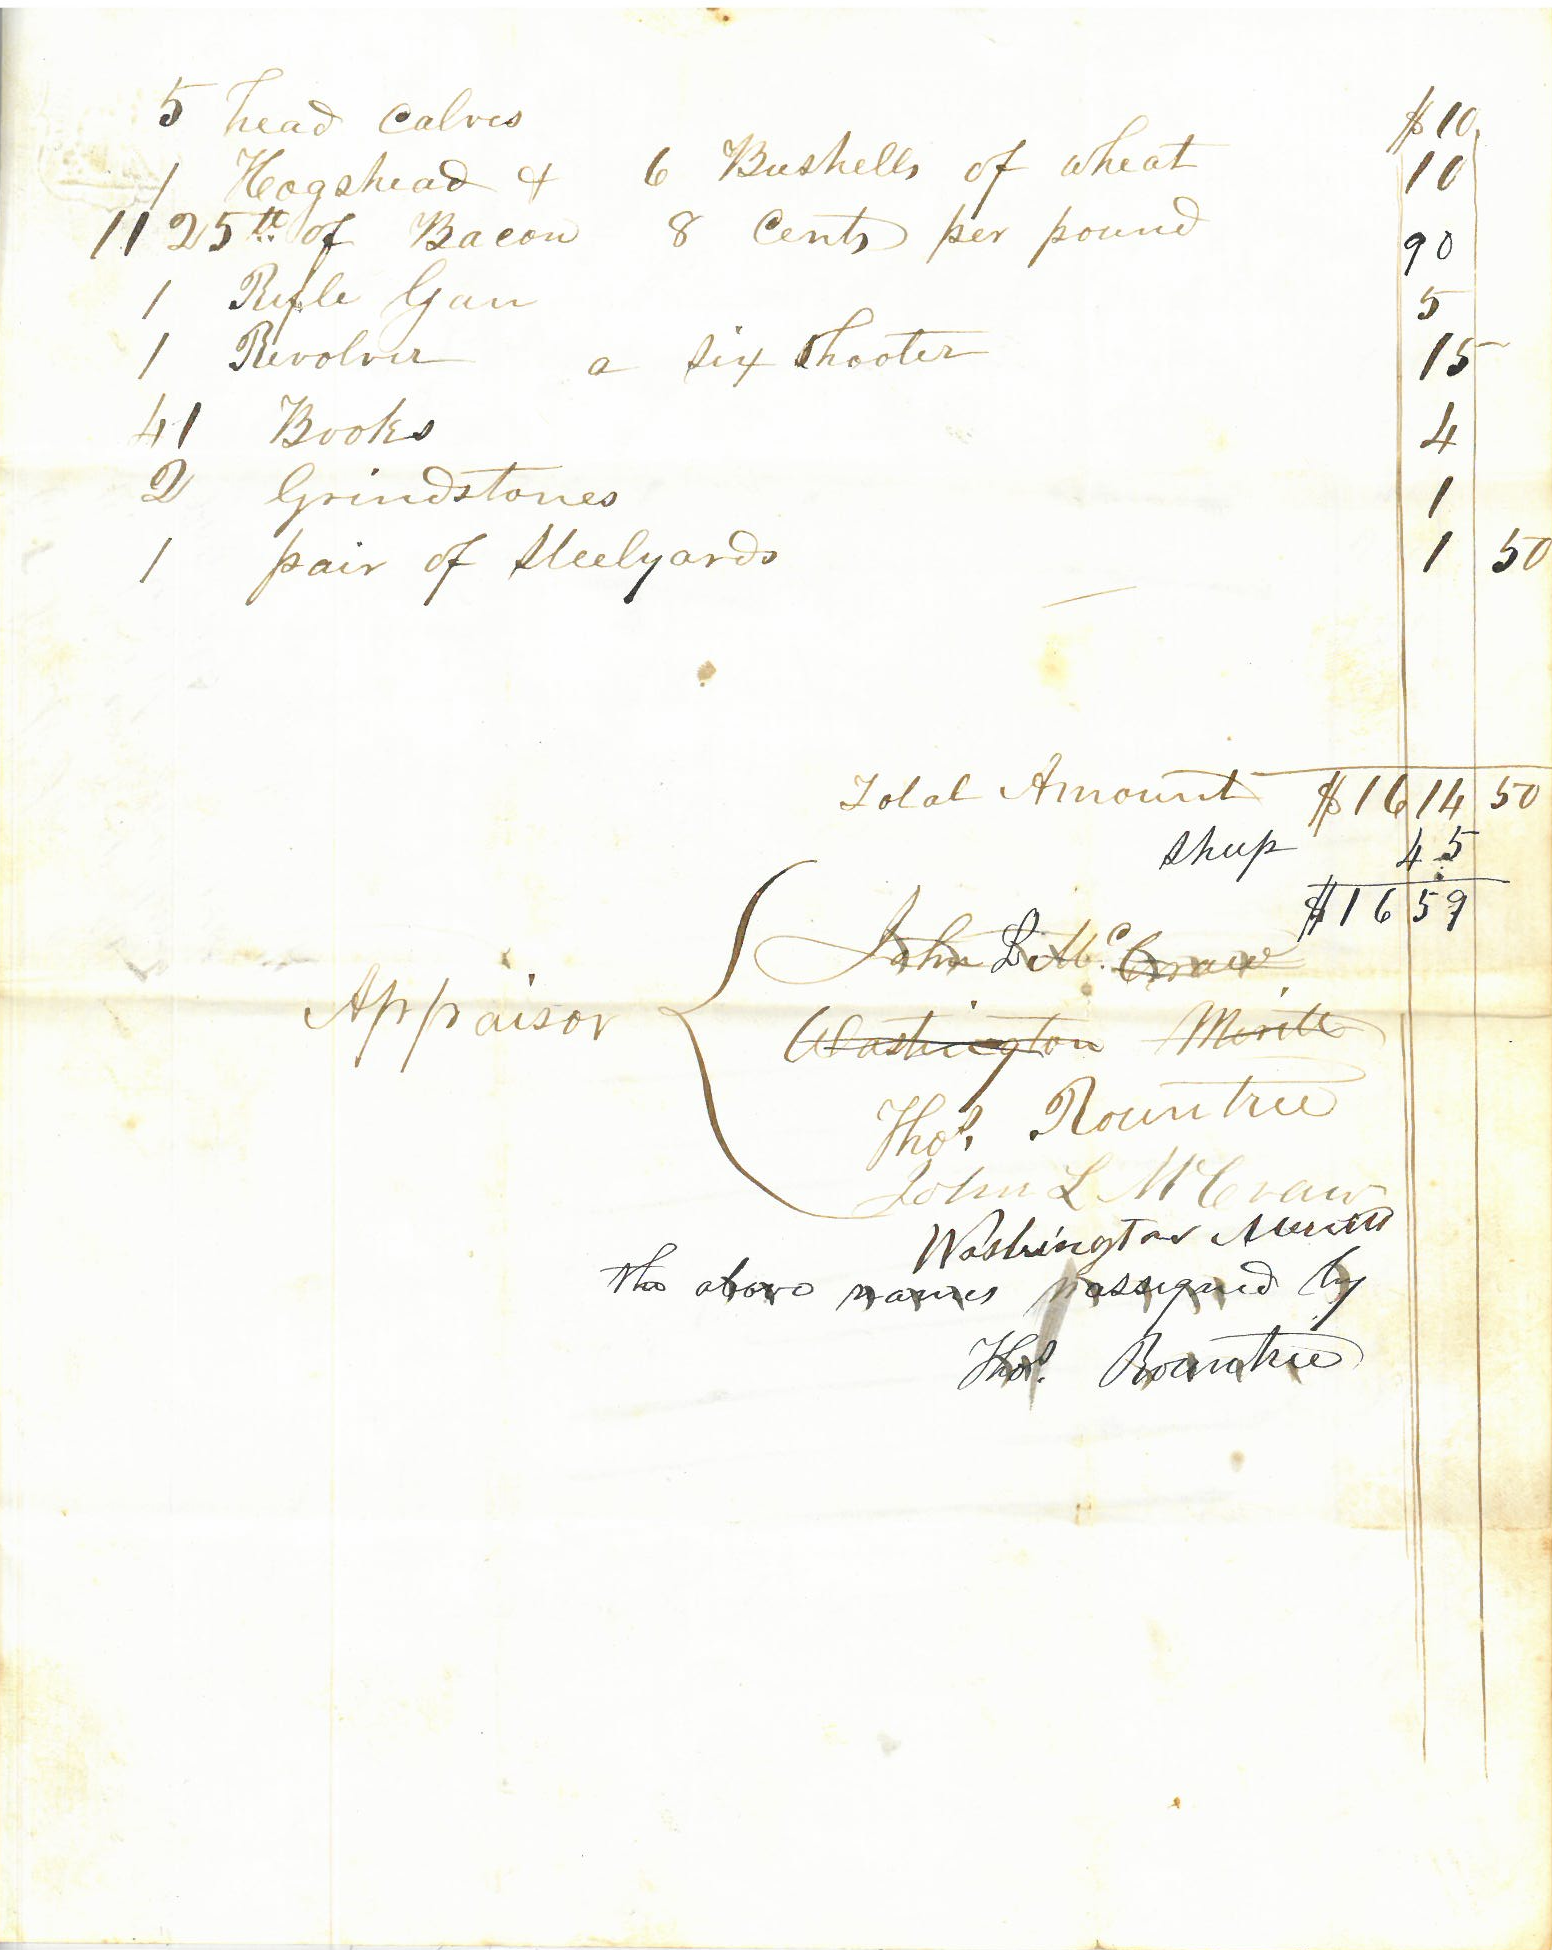 5 head calves $10
1 Hogshead & 6 Bushells of wheat 10
1125 lb of Bacon 8 Cents per pound 90
1 Rifle Gun 5
1 Revolver a six shooter 15
41 Books 4
2 Grindstones 1
1 pair of steelyards 1 50
Total Amount $1614 50
shup 45
$1659
John L Mc. Craw
Appraisor
Washington Meritt
Thos. Rountree
John L McCraw
Washington Merritt
the above names assigned by
Thos. Rountree